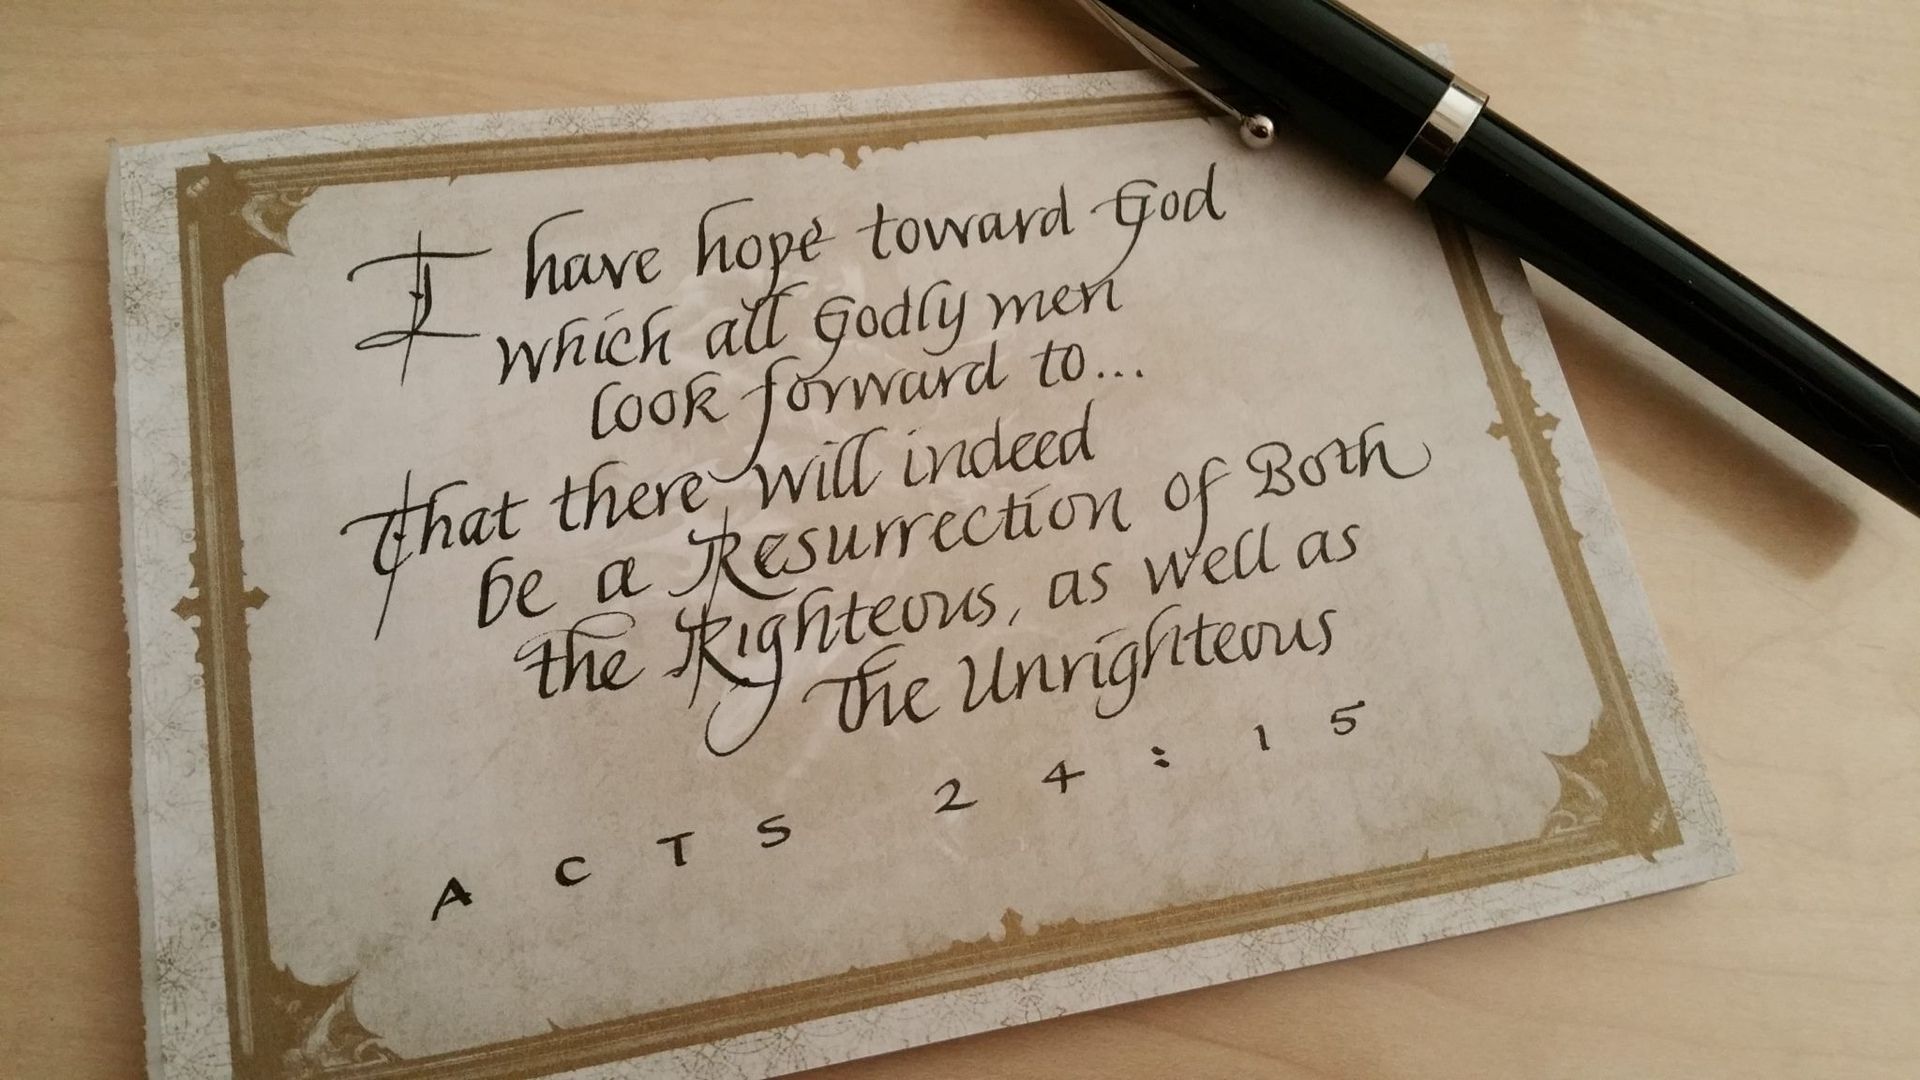 I have hope toward God
which all Godly men
look forward to...
That there will indeed
be a Resurrection of Both
the Righteous, as well as
The Unrighteous
ACTS 24:15